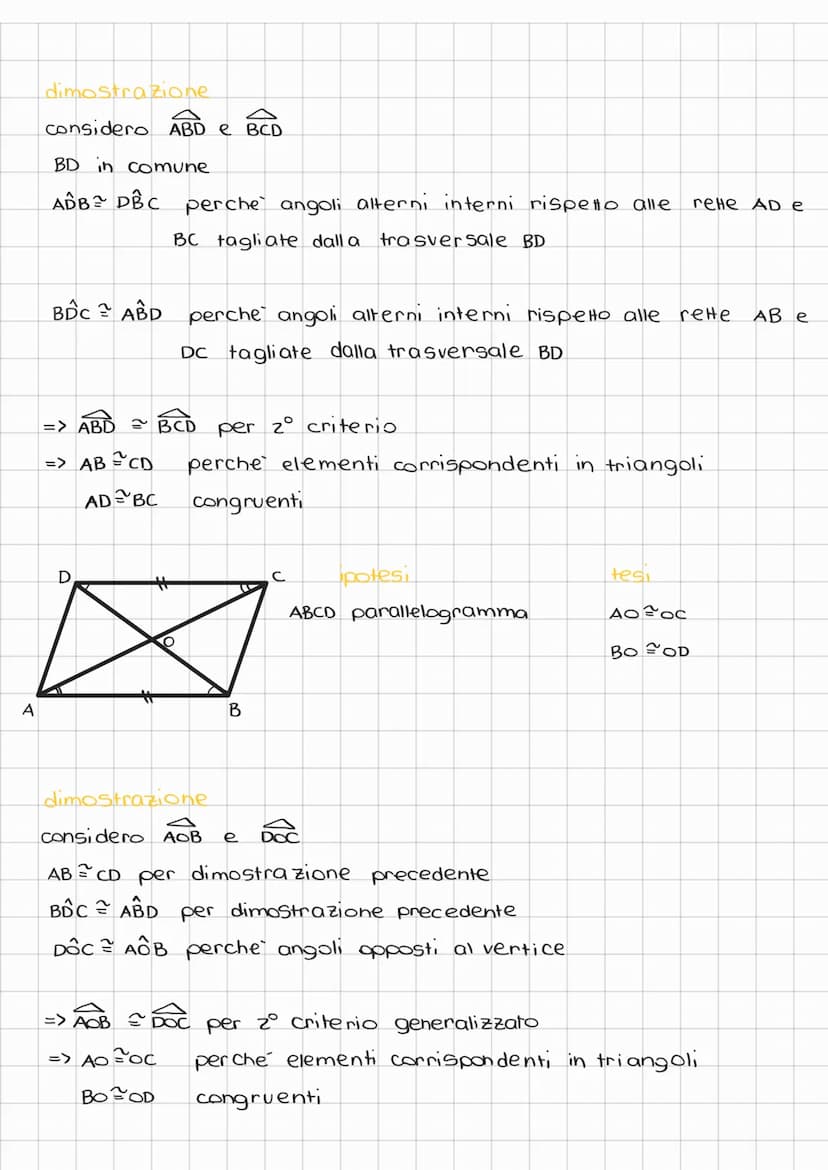 dimostrazione
considero ABD e BCD
BD in comune
AD̂B ≅ DB̂C perchè angoli alterni interni rispetto alle rette AD e
BC tagliate dalla trasversale BD
BD̂C ≅ AB̂D perchè angoli alterni interni rispetto alle rette AB e
DC tagliate dalla trasversale BD
=> ABD ≅ BCD per 2° criterio
=> AB ≅ CD perchè elementi corrispondenti in triangoli
AD ≅ BC congruenti
D C ipotesi tesi
ABCD parallelogramma AO ≅ OC
O BO ≅ OD
A B
dimostrazione
considero AOB e DOC
AB ≅ CD per dimostrazione precedente
BD̂C ≅ AB̂D per dimostrazione precedente
DÔC ≅ AÔB perchè angoli opposti al vertice
=> AOB ≅ DOC per 2° criterio generalizzato
=> AO ≅ OC perché elementi corrispondenti in triangoli
BO ≅ OD congruenti